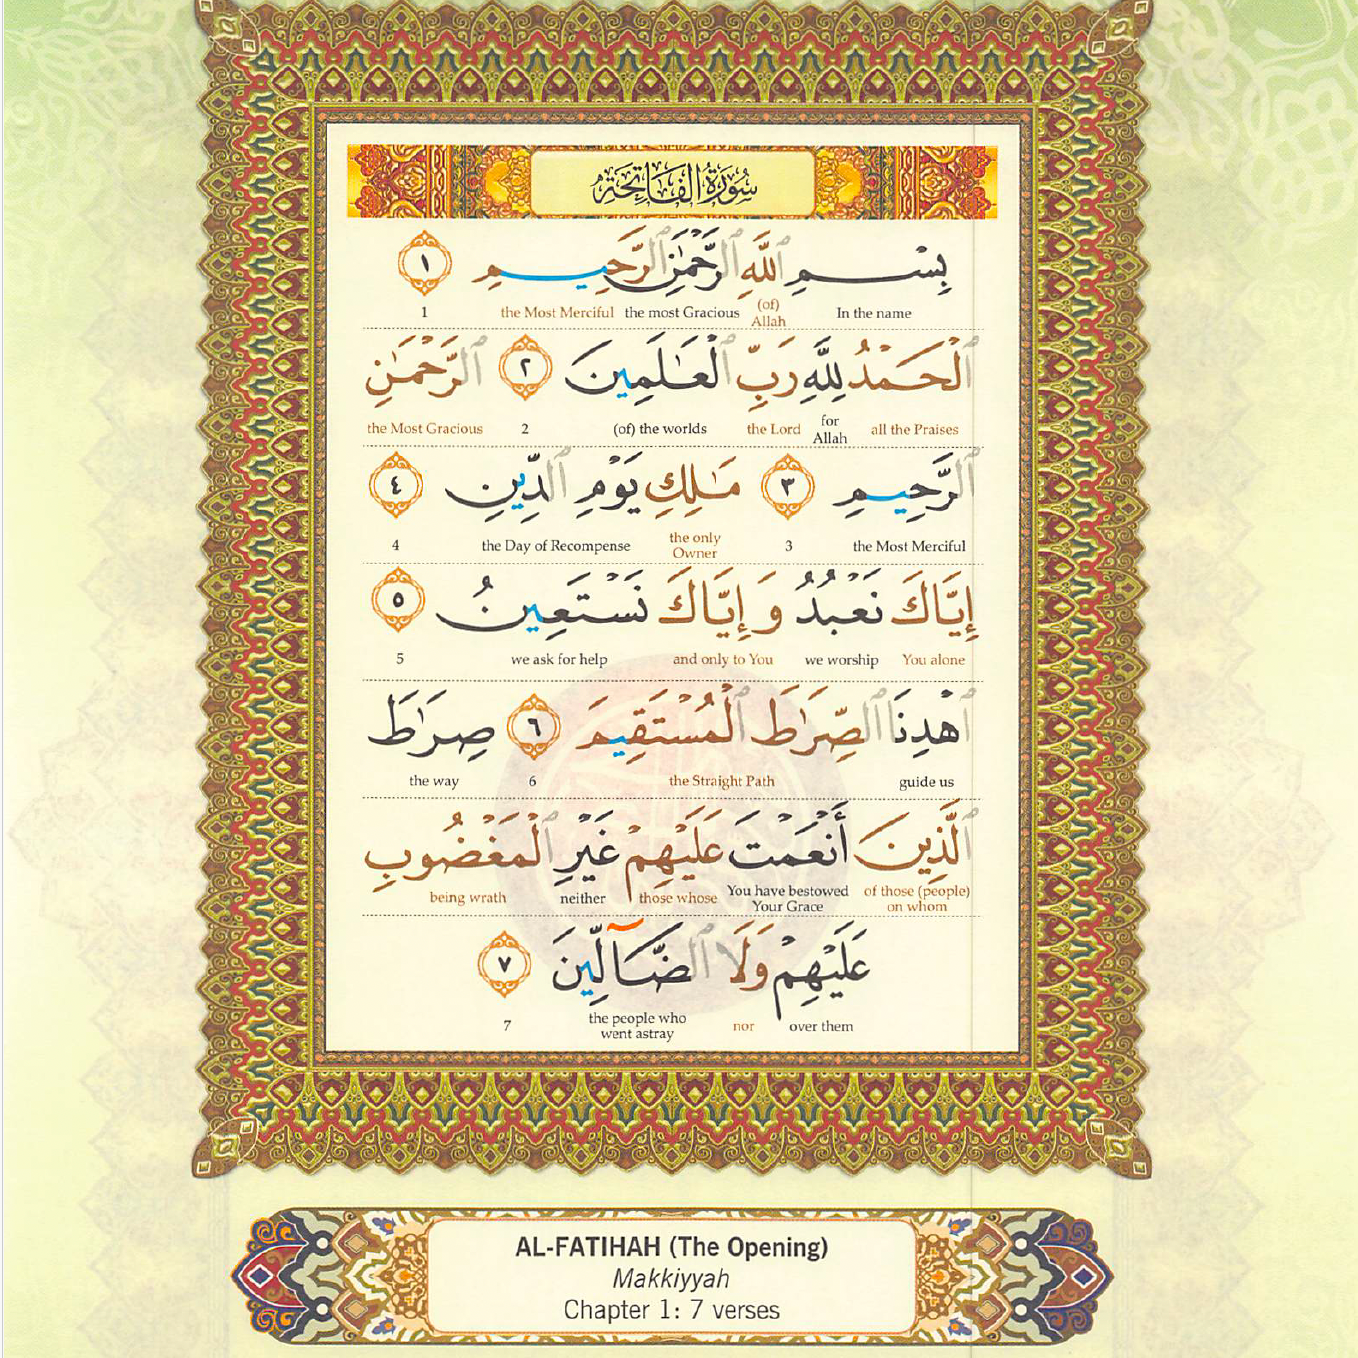 سُورَةُ الْفَاتِحَةِ
بِسْمِ ٱللَّهِ ٱلرَّحْمَٰنِ ٱلرَّحِيمِ ١
In the name (of) Allah the most Gracious the Most Merciful 1
ٱلْحَمْدُ لِلَّهِ رَبِّ ٱلْعَٰلَمِينَ ٢ ٱلرَّحْمَٰنِ
all the Praises for Allah the Lord (of) the worlds 2 the Most Gracious
ٱلرَّحِيمِ ٣ مَٰلِكِ يَوْمِ ٱلدِّينِ ٤
the Most Merciful 3 the only Owner the Day of Recompense 4
إِيَّاكَ نَعْبُدُ وَ إِيَّاكَ نَسْتَعِينُ ٥
You alone we worship and only to You we ask for help 5
ٱهْدِنَا ٱلصِّرَٰطَ ٱلْمُسْتَقِيمَ ٦ صِرَٰطَ
guide us the Straight Path 6 the way
ٱلَّذِينَ أَنْعَمْتَ عَلَيْهِمْ غَيْرِ ٱلْمَغْضُوبِ
of those (people) on whom You have bestowed Your Grace those whose neither being wrath
عَلَيْهِمْ وَلَا ٱلضَّآلِّينَ ٧
over them nor the people who went astray 7
AL-FATIHAH (The Opening)
Makkiyyah
Chapter 1: 7 verses